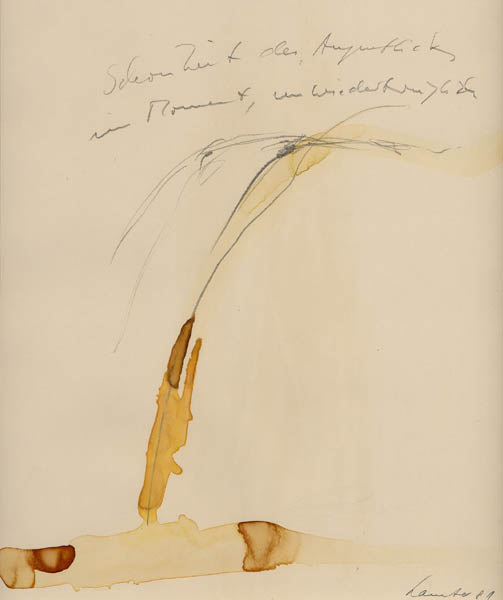 Schönheit des Augenblicks
im Moment, unwiederbringlich